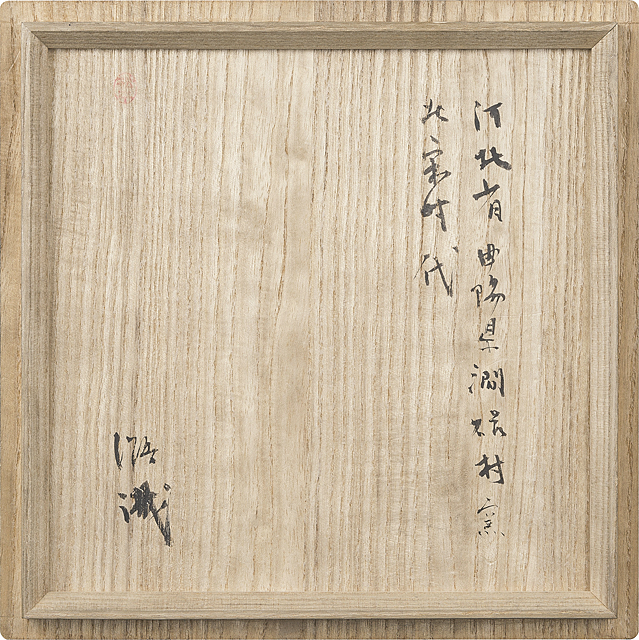 河北省曲陽県澗磁村窯
北宋時代